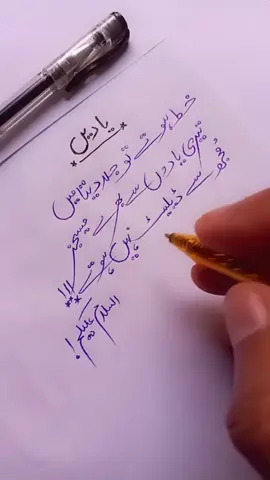 *یادیں*
خط ہوتے تو جلا دیتا میں
تیری یادوں سے بھرے میسجز
مجھ سے ڈیلیٹ نہیں ہوتے !!!
السلام علیکم!